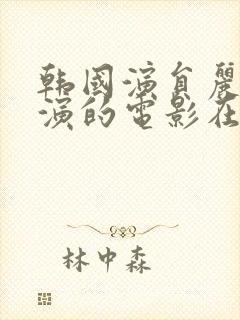 韩國演員麗
演的電影在
林中森